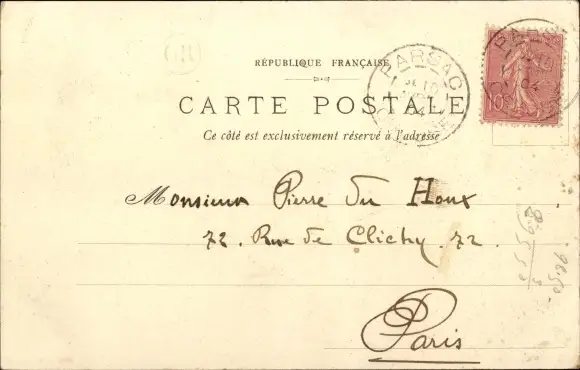 RÉPUBLIQUE FRANÇAISE
CARTE POSTALE
Ce côté est exclusivement réservé à l'adresse
PARSAC
PARSAC
10
Monsieur Pierre du Houx
72. Rue de Clichy. 72.
Paris